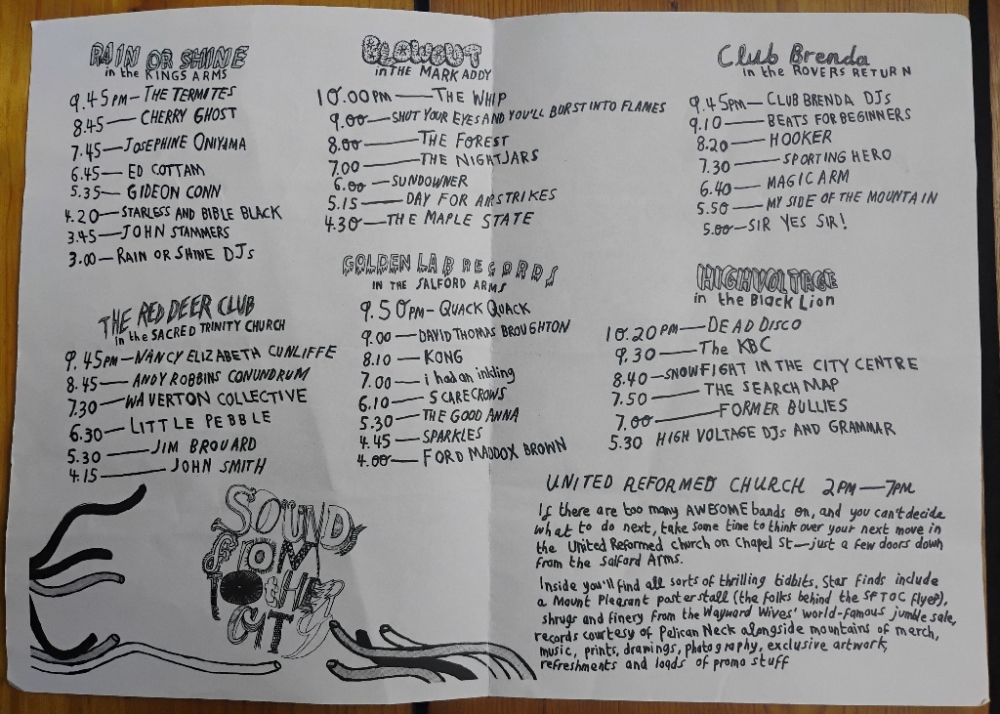 RAIN OR SHINE
in the KINGS ARMS
9.45pm—THE TERMITES
8.45—CHERRY GHOST
7.45—JOSEPHINE ONIYAMA
6.45—ED COTTAM
5.35—GIDEON CONN
4.20—STARLESS AND BIBLE BLACK
3.45—JOHN STAMMERS
3.00—RAIN OR SHINE DJs
BLOWOUT
in THE MARK ADDY
10.00PM—THE WHIP
9.00—SHUT YOUR EYES AND YOU'LL BURST INTO FLAMES
8.00—THE FOREST
7.00—THE NIGHTJARS
6.00—SUNDOWNER
5.15—DAY FOR AIRSTRIKES
4.30—THE MAPLE STATE
Club Brenda
in the ROVERS RETURN
9.45PM—CLUB BRENDA DJs
9.10—BEATS FOR BEGINNERS
8.20—HOOKER
7.30—SPORTING HERO
6.40—MAGIC ARM
5.50—MY SIDE OF THE MOUNTAIN
5.00—SIR YES SIR!
THE RED DEER CLUB
in the SACRED TRINITY CHURCH
9.45PM—NANCY ELIZABETH CUNLIFFE
8.45—ANDY ROBBINS CONUNDRUM
7.30—WAVERTON COLLECTIVE
6.30—LITTLE PEBBLE
5.30—JIM BROUARD
4.15—JOHN SMITH
GOLDEN LAB RECORDS
IN THE SALFORD ARMS
9.50PM—QUACK QUACK
9.00—DAVID THOMAS BROUGHTON
8.10—KONG
7.00—i had an inkling
6.10—SCARECROWS
5.30—THE GOOD ANNA
4.45—SPARKLES
4.00—FORD MADDOX BROWN
HIGH VOLTAGE
in the Black Lion
10.20PM—DEAD DISCO
9.30—The KBC
8.40—SNOWFIGHT IN THE CITY CENTRE
7.50—THE SEARCH MAP
7.00—FORMER BULLIES
5.30 HIGH VOLTAGE DJs AND GRAMMAR
SOUNDS
FROM
THE OTHER
CITY
UNITED REFORMED CHURCH 2PM—7PM
If there are too many AWESOME bands on, and you can't decide
what to do next, take some time to think over your next move in
the United Reformed church on Chapel St—just a few doors down
from the Salford Arms.
Inside you'll find all sorts of thrilling tidbits. Star finds include
a Mount Pleasant poster stall (the folks behind the SFTOC flyer),
shrugs and finery from the Wayward Wives' world-famous jumble sale,
records courtesy of Pelican Neck alongside mountains of merch,
music, prints, drawings, photography, exclusive artwork,
refreshments and loads of promo stuff